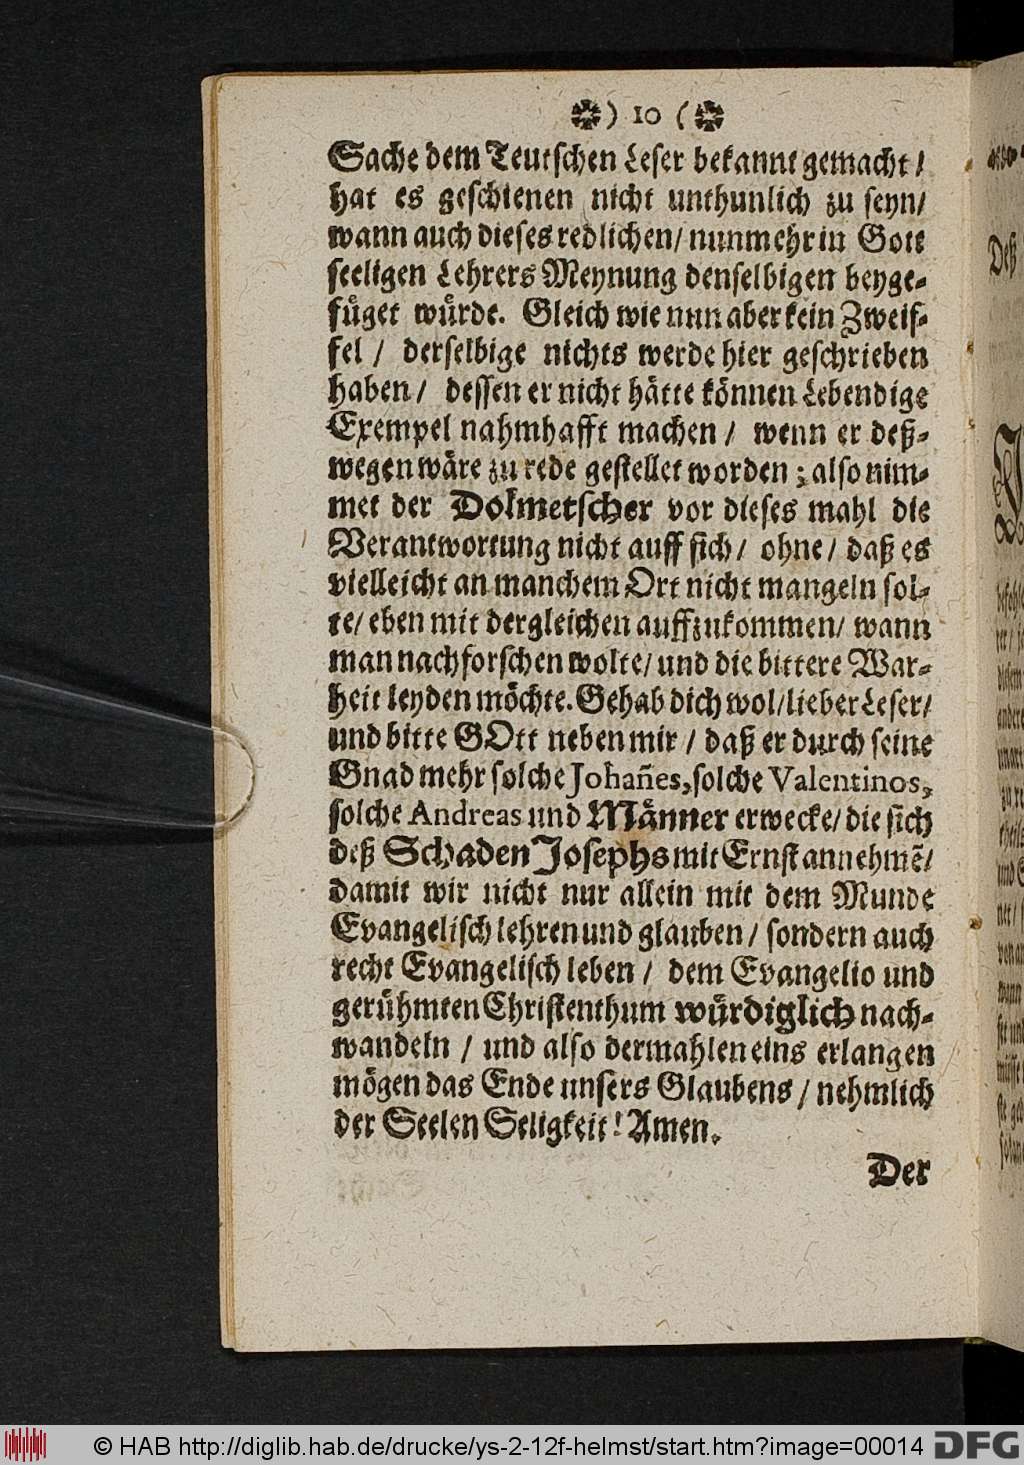 ) 10 (
Sache dem Teutschen Leser bekannt gemacht /
hat es geschienen nicht unthunlich zu seyn/
wann auch dieses redlichen/ nunmehr in Gott
seeligen Lehrers Meynung denselbigen beyge-
füget würde. Gleich wie nun aber kein Zweif-
fel / derselbige nichts werde hier geschrieben
haben / dessen er nicht hätte können Lebendige
Exempel nahmhafft machen / wenn er deß-
wegen wäre zu rede gestellet worden ; also nim-
met der Dolmetscher vor dieses mahl die
Verantwortung nicht auff sich / ohne / daß es
vielleicht an manchem Ort nicht mangeln sol-
te/ eben mit dergleichen auffzukommen/ wann
man nachforschen wolte/ und die bittere War-
heit leyden möchte. Gehab dich wol/ lieber Leser/
und bitte GOtt neben mir / daß er durch seine
Gnad mehr solche Johañes, solche Valentinos,
solche Andreas und Männer erwecke/ die sich
deß Schaden Josephs mit Ernst annehmē/
damit wir nicht nur allein mit dem Munde
Evangelisch lehren und glauben / sondern auch
recht Evangelisch leben / dem Evangelio und
gerühmten Christenthum würdiglich nach-
wandeln / und also dermahlen eins erlangen
mögen das Ende unsers Glaubens / nehmlich
der Seelen Seligkeit! Amen.
Der
Deß
© HAB http://diglib.hab.de/drucke/ys-2-12f-helmst/start.htm?image=00014
DFG